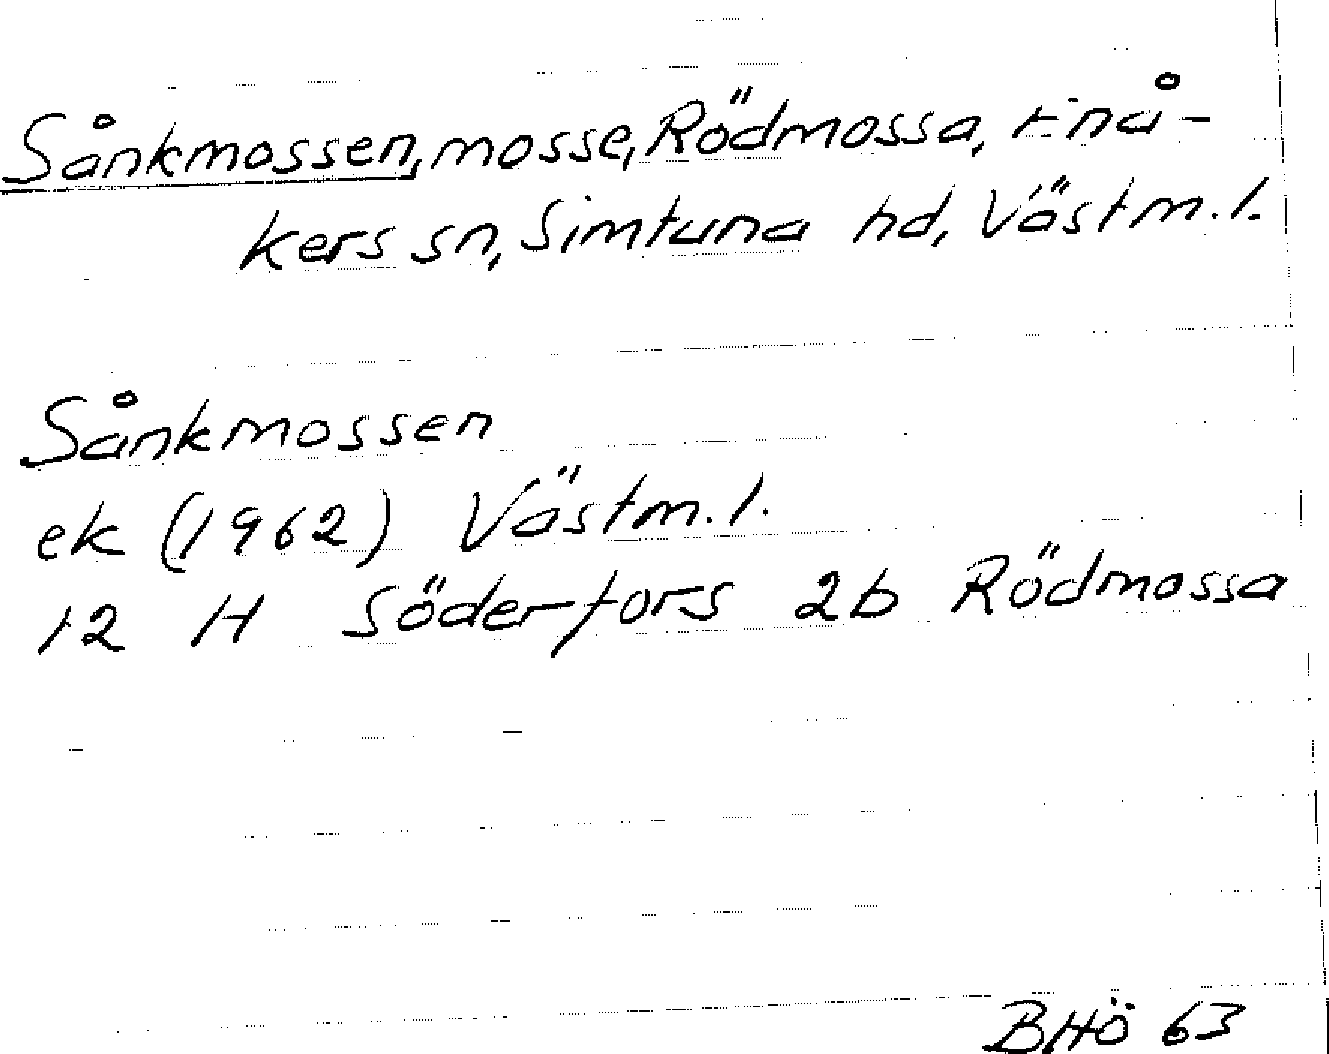 Sånkmossen, mosse, Rödmossa, Enå-
kers sn, Simtuna hd, Västm. l.
Sånkmossen
ek (1962) Västm. l.
12 H Söderfors 2b Rödmossa
BHÖ 63